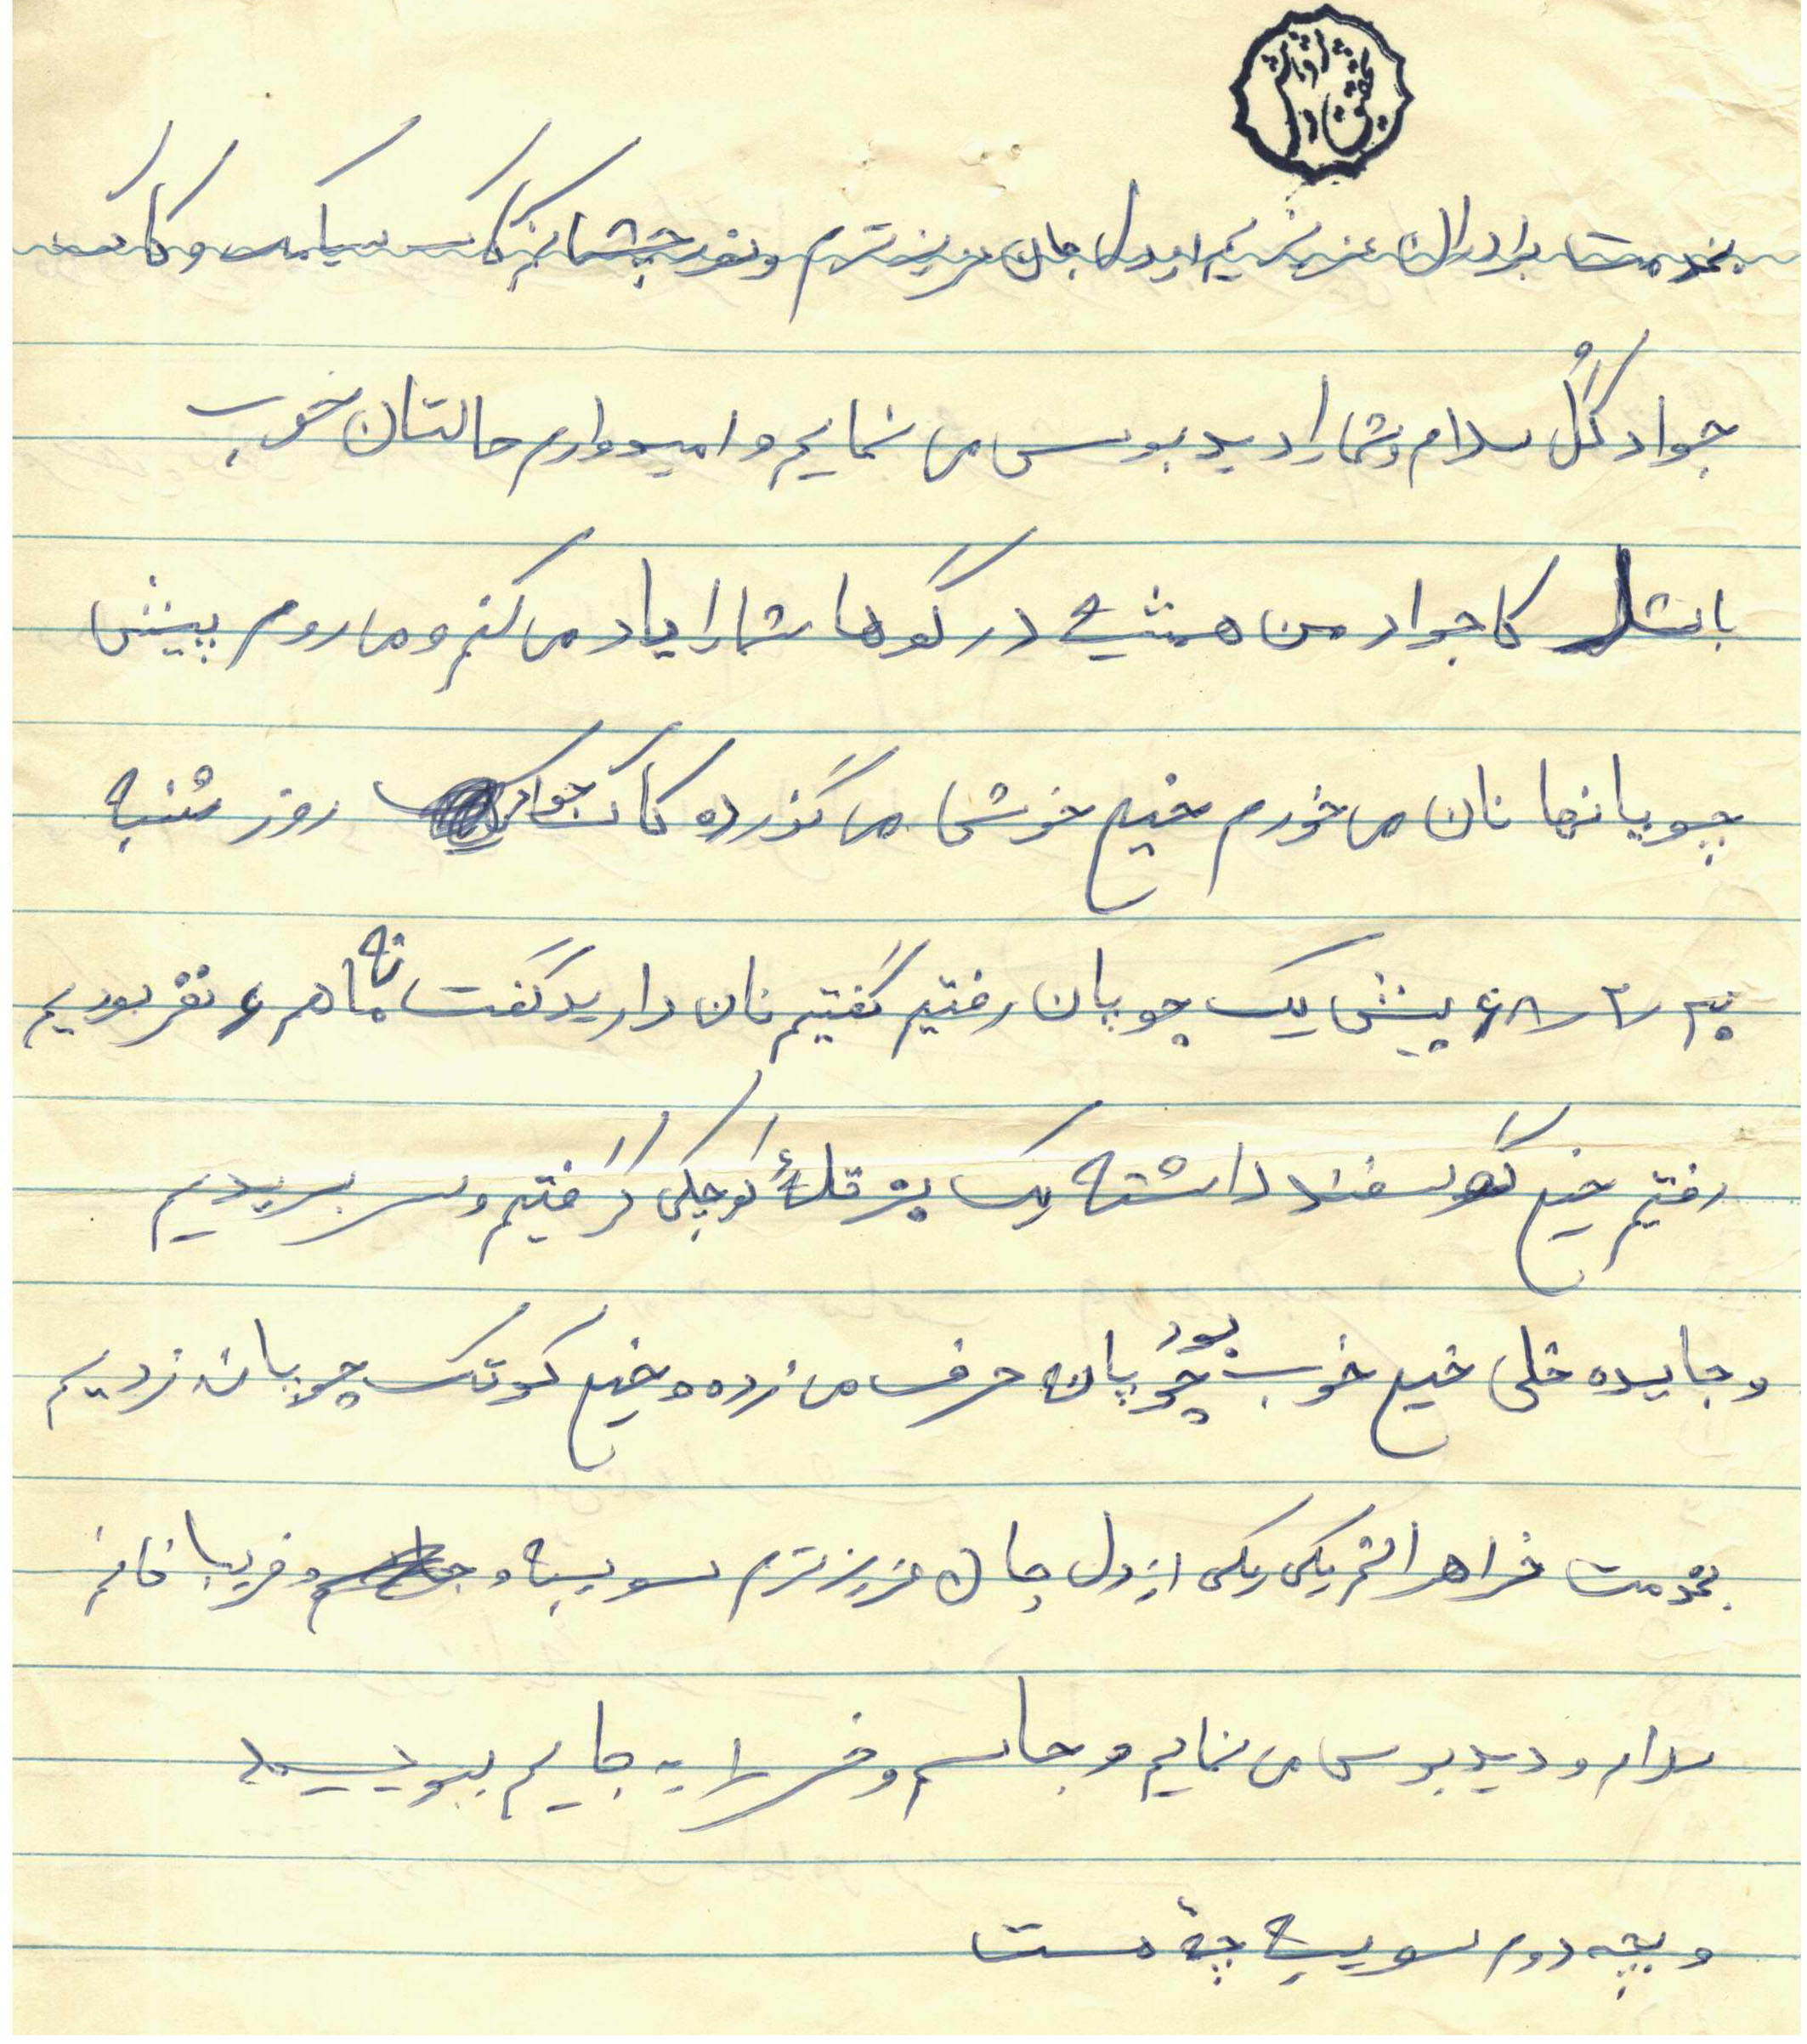 بخدمت برادران عزیزیم از دل جان عزیزترم و نور چشمانم کاک سیامک و کاک
جواد گُل سلام و شما را دید بوسی می نمایم و امیدوارم حالتان خوب
باشد کاجواد من همشیه در کوها شما را یاد می کنم و می روم پیش
چوپانها نان می خورم خیلی خوش می گذرده کاک جواد روز شنبه
پیش یک چوپان رفتیم گفتیم نان دارید گفت نه ما هم ۶ نفر بودیم
رفتیم خیلی گوسفند داشته یک بز قلهٔ کوچکی گرفتیم و سر بریدیم
و جایده خلی خیلی خوب بود چوپان حرف می زده و خیلی کوتک چوپان زدیم
بخدمت خواهرانم یکی یکی از دل جان عزیزترم سویبه و فریبا خانم
سلام و دید بوسی می نمایم و جاسم و را به جایم ببوسید
و بچه دوم سویبه چه هست